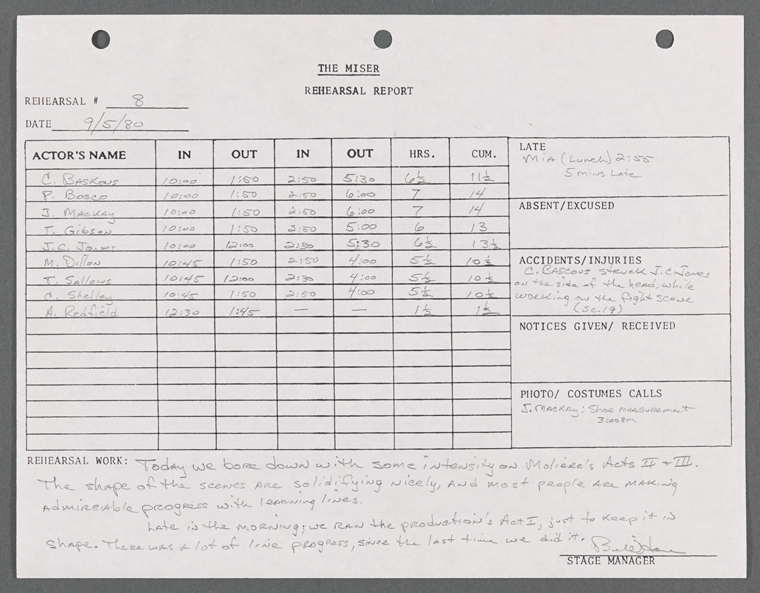 THE MISER
REHEARSAL REPORT
REHEARSAL # 8
DATE 9/5/80
ACTOR'S NAME IN OUT IN OUT HRS. CUM.
C. BASKOUS 10:00 1:50 2:50 5:30 6½ 11½
P. BOSCO 10:00 1:50 2:50 6:00 7 14
J. MACKAY 10:00 1:50 2:50 6:00 7 14
T. Gibson 10:00 1:50 2:50 5:00 6 13
J.C. Jones 10:00 12:00 2:30 5:30 6½ 13½
M. Dillon 10:45 1:50 2:50 4:00 5½ 10½
T. Sallows 10:45 12:00 2:30 4:00 5½ 10½
C. Shelley 10:45 1:50 2:50 4:00 5½ 10½
A. Redfield 12:30 1:45 — — 1½ 1½
LATE
MIA (Lunch) 2:55
5 mins Late
ABSENT/EXCUSED
ACCIDENTS/INJURIES
C. BASCOUS struck J.C. JONES
on the side of the head, while
working on the fight scene
(Sc. 19)
NOTICES GIVEN/ RECEIVED
PHOTO/ COSTUMES CALLS
J. MACKAY: Shoe measurement
3:00pm
REHEARSAL WORK: Today we bore down with some intensity on Moliere's Acts II & III.
The shape of the scenes are solidifying nicely, and most people are making
admireable progress with learning lines.
Late in the morning; we ran the production's Act I, just to keep it in
shape. There was a lot of line progress, since the last time we did it.
STAGE MANAGER